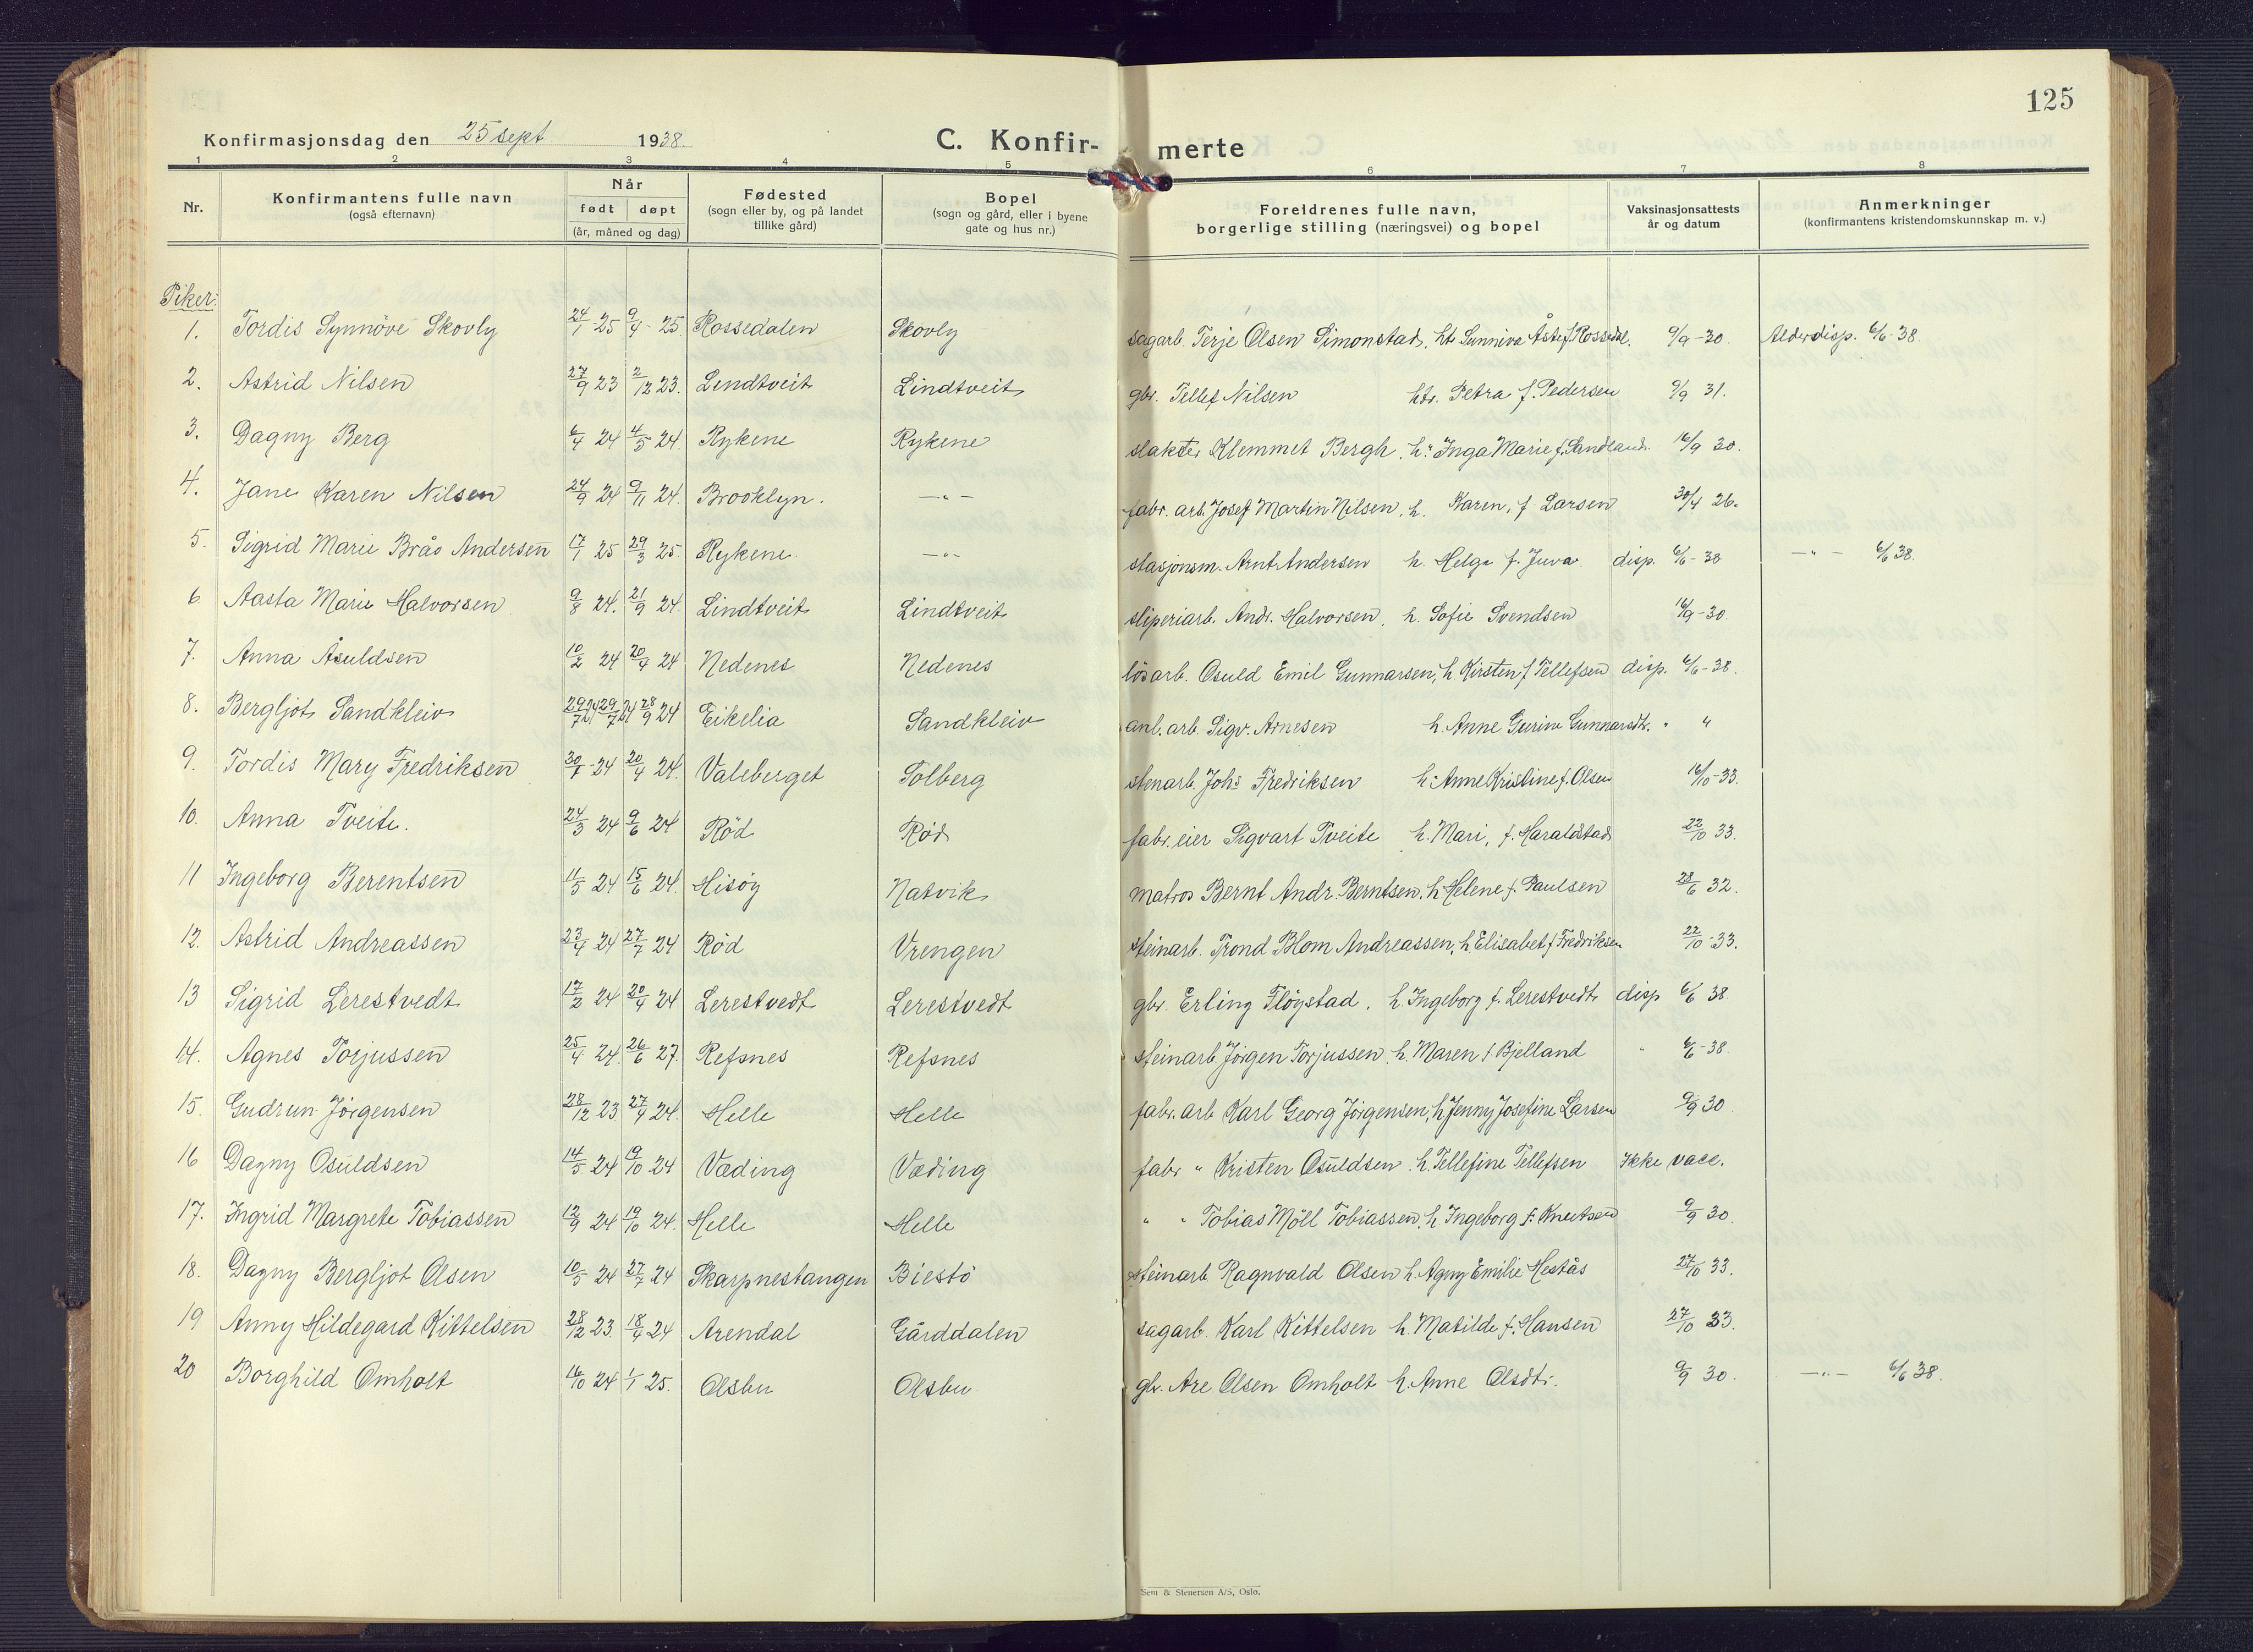 125
Konfirmasjonsdag den 25 sept. 1938. C. Konfir- merte
1 2 3 4 5 6 7 8
Nr. Konfirmantens fulle navn (også efternavn) Når født døpt (år, måned og dag) Fødested (sogn eller by, og på landet tillike gård) Bopel (sogn og gård, eller i byene gate og hus nr.) Foreldrenes fulle navn, borgerlige stilling (næringsvei) og bopel Vaksinasjonsattests år og datum Anmerkninger (konfirmantens kristendomskunnskap m. v.)
Piker:
1. Tordis Synnöve Skovly 24/1 25 9/4 - 25 Rossedalen Skovly sagarb. Terje Olsen Simonstad, h. Sunniva Åste f. Rossedal. 9/9 - 30. Aldersdisp. 6/6 - 38.
2. Astrid Nilsen 27/9 23 2/12 23. Lindtveit Lindtveit gbr. Tellef Nilsen htr. Petra f. Pedersen 9/9 31.
3. Dagny Berg 6/4 24 4/5 24. Rykene Rykene slakter Klemmet Bergh, h: Inga Marie f. Sandland. 16/9 30.
4. Jane Karen Nilsen 24/9 24 9/11 24. Brooklyn. —"— fabr. arb. Josef Martin Nilsen, h. Karen, f Larsen 30/4 26.
5. Sigrid Marie Bråo Andersen 17/1 25 29/3 25. Rykene. —"— stasjonsm. Arnt Andersen h. Helga f. Juva disp. 6/6 - 38 —"— 6/6 38.
6 Aasta Marie Halvorsen 9/8 24. 21/9 24. Lindtveit Lindtveit sliperiarb. Andr. Halvorsen, h. Sofie Svendsen 16/9 - 30.
7. Anna Åsuldsen 10/2 24 20/4 24 Nedenes Nedenes lösarb. Osuld Emil Gunnarsen, h Kirsten f Tellefsen disp. 6/6 - 38.
8. Bergljot Sandkleiv 29/7 24 29/7 24 28/9 24 Eikelia Sandkleiv anl. arb. Sigv. Arnesen h. Anne Gurine Gunnarsdtr. " "
9. Tordis Mary Fredriksen 30/1 - 24 20/4 24. Valeberget Solberg stenarb. Johs Fredriksen h: Anne Kristine f. Olsen 16/10 - 33.
10. Anna Tveite. 24/3 24 9/6 24 Röd Röd fabr. eier Sigvart Tveite h. Mari, f. Haraldstad 22/10 33.
11 Ingeborg Berentsen 11/5 24 15/6 24. Hisöy Natvik matros Bernt Andr. Berntsen, h Helene f. Paulsen 28/6 32.
12. Astrid Andreassen 23/4 24 27/7 24 Röd Vrengen steinarb. Trond Blom Andreassen, h. Elisabet f Fredriksen 22/10 - 33.
13 Sigrid Lerestvedt 17/2 24 20/4 24 Lerestvedt Lerestvedt gbr. Erling Flöystad, h. Ingeborg f. Lerestvedt disp 6/6 38.
14. Agnes Torjussen 25/4 24. 26/6 27. Refsnes Refsnes steinarb Jörgen Torjussen h. Maren f. Bjelland " 6/6 - 38.
15. Gudrun Jörgensen 28/12 23. 27/4 24. Helle Helle fabr. arb Karl Georg Jörgensen, h Jenny Josefine Larsen 9/9 30
16 Dagny Osuldsen 14/5 24 19/10 24 Væding Væding fabr " Kristen Osuldsen h. Tellefine Tellefsen Ikke vacc.
17. Ingrid Margrete Tobiassen 12/9 24 19/10 24. Helle Helle " " Tobias Möll Tobiassen, h Ingeborg f. Knutsen 9/9 30
18. Dagny Bergljot Olsen 10/5 24 27/7 24 Skarpnestangen Biestö steinarb Ragnvald Olsen h. Agny Emilie Hestås 27/10 33.
19 Anny Hildegard Kittelsen 28/12 23. 18/4 24 Arendal Gårddalen sagarb. Karl Kittelsen h. Matilde f. Hansen 27/10 33.
20 Borghild Omholt 16/10 24 1/1 25. Olsbu Olsbu gbr. Are Olsen Omholt h. Anne Olsdtr. 9/9 30. —"— 6/6 38.
Sem & Stenersen A/S, Oslo.